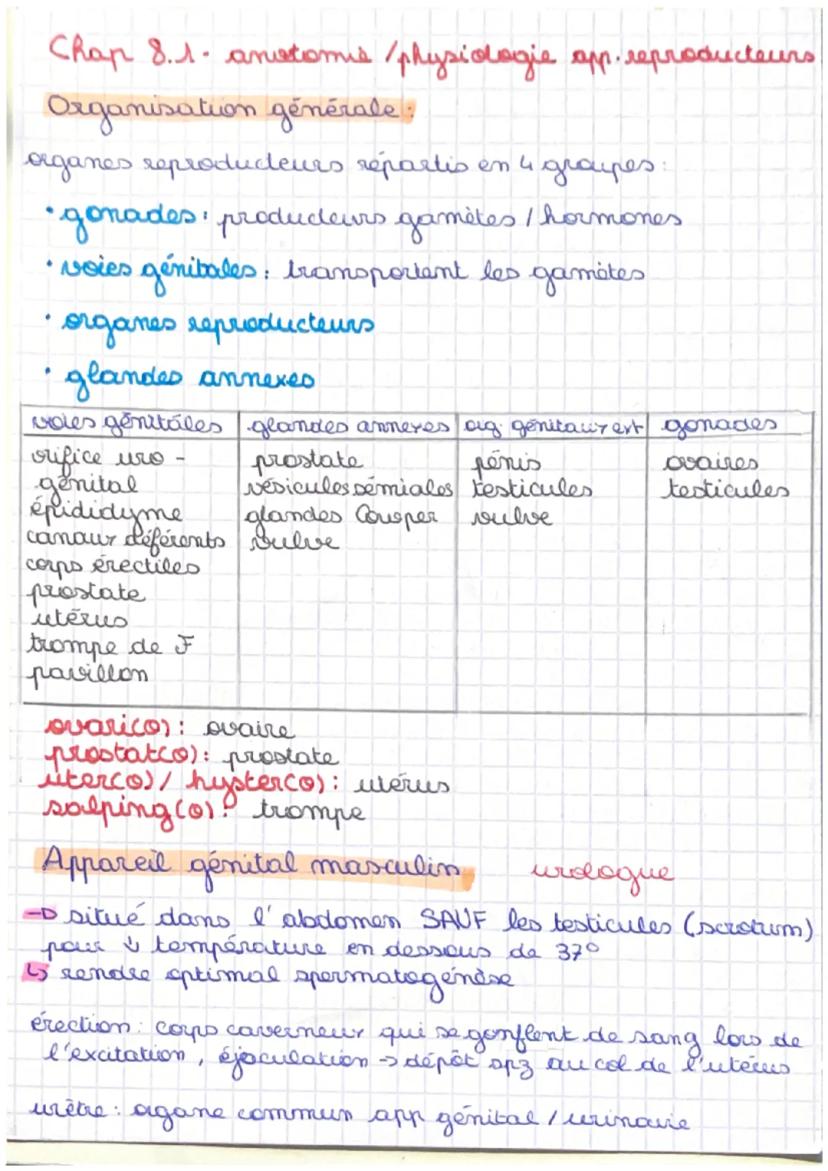 Chap 8.1 - anatomie / physiologie app. reproducteurs
Organisation générale :
organes reproducteurs répartis en 4 groupes :
• gonades : producteurs gamètes / hormones
• voies génitales : transportent les gamètes
• organes reproducteurs
• glandes annexes
voies génitales | glandes annexes | org. génitaux ext | gonades
orifice uro - | prostate | pénis | ovaires
génital | vésicules sémiales | testicules | testicules
épididyme | glandes Cowper | vulve
canaux déférents | vulve
corps érectiles
prostate
utérus
trompe de F
pavillon
ovaric(o) : ovaire
prostat(o) : prostate
uter(o) / hyster(o) : utérus
salping(o) : trompe
Appareil génital masculin urologue
→ situé dans l'abdomen SAUF les testicules (scrotum)
pour ↓ température en dessous de 37°
↳ rendre optimal spermatogénèse
érection : corps caverneux qui se gonflent de sang lors de
l'excitation, éjaculation → dépôt spz au col de l'utérus
urètre : organe commun app génital / urinaire